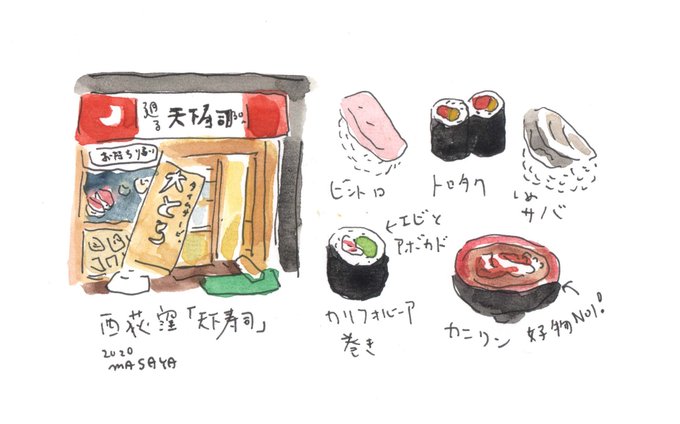 廻る 天下寿司
お持ち帰り
タイムサービス
大とろ
西荻窪「天下寿司」
2020
MASAYA
ビントロ
トロタク
しめ
サバ
←エビと
アボカド
カリフォルニア
巻き
カニミソ
好物No1!